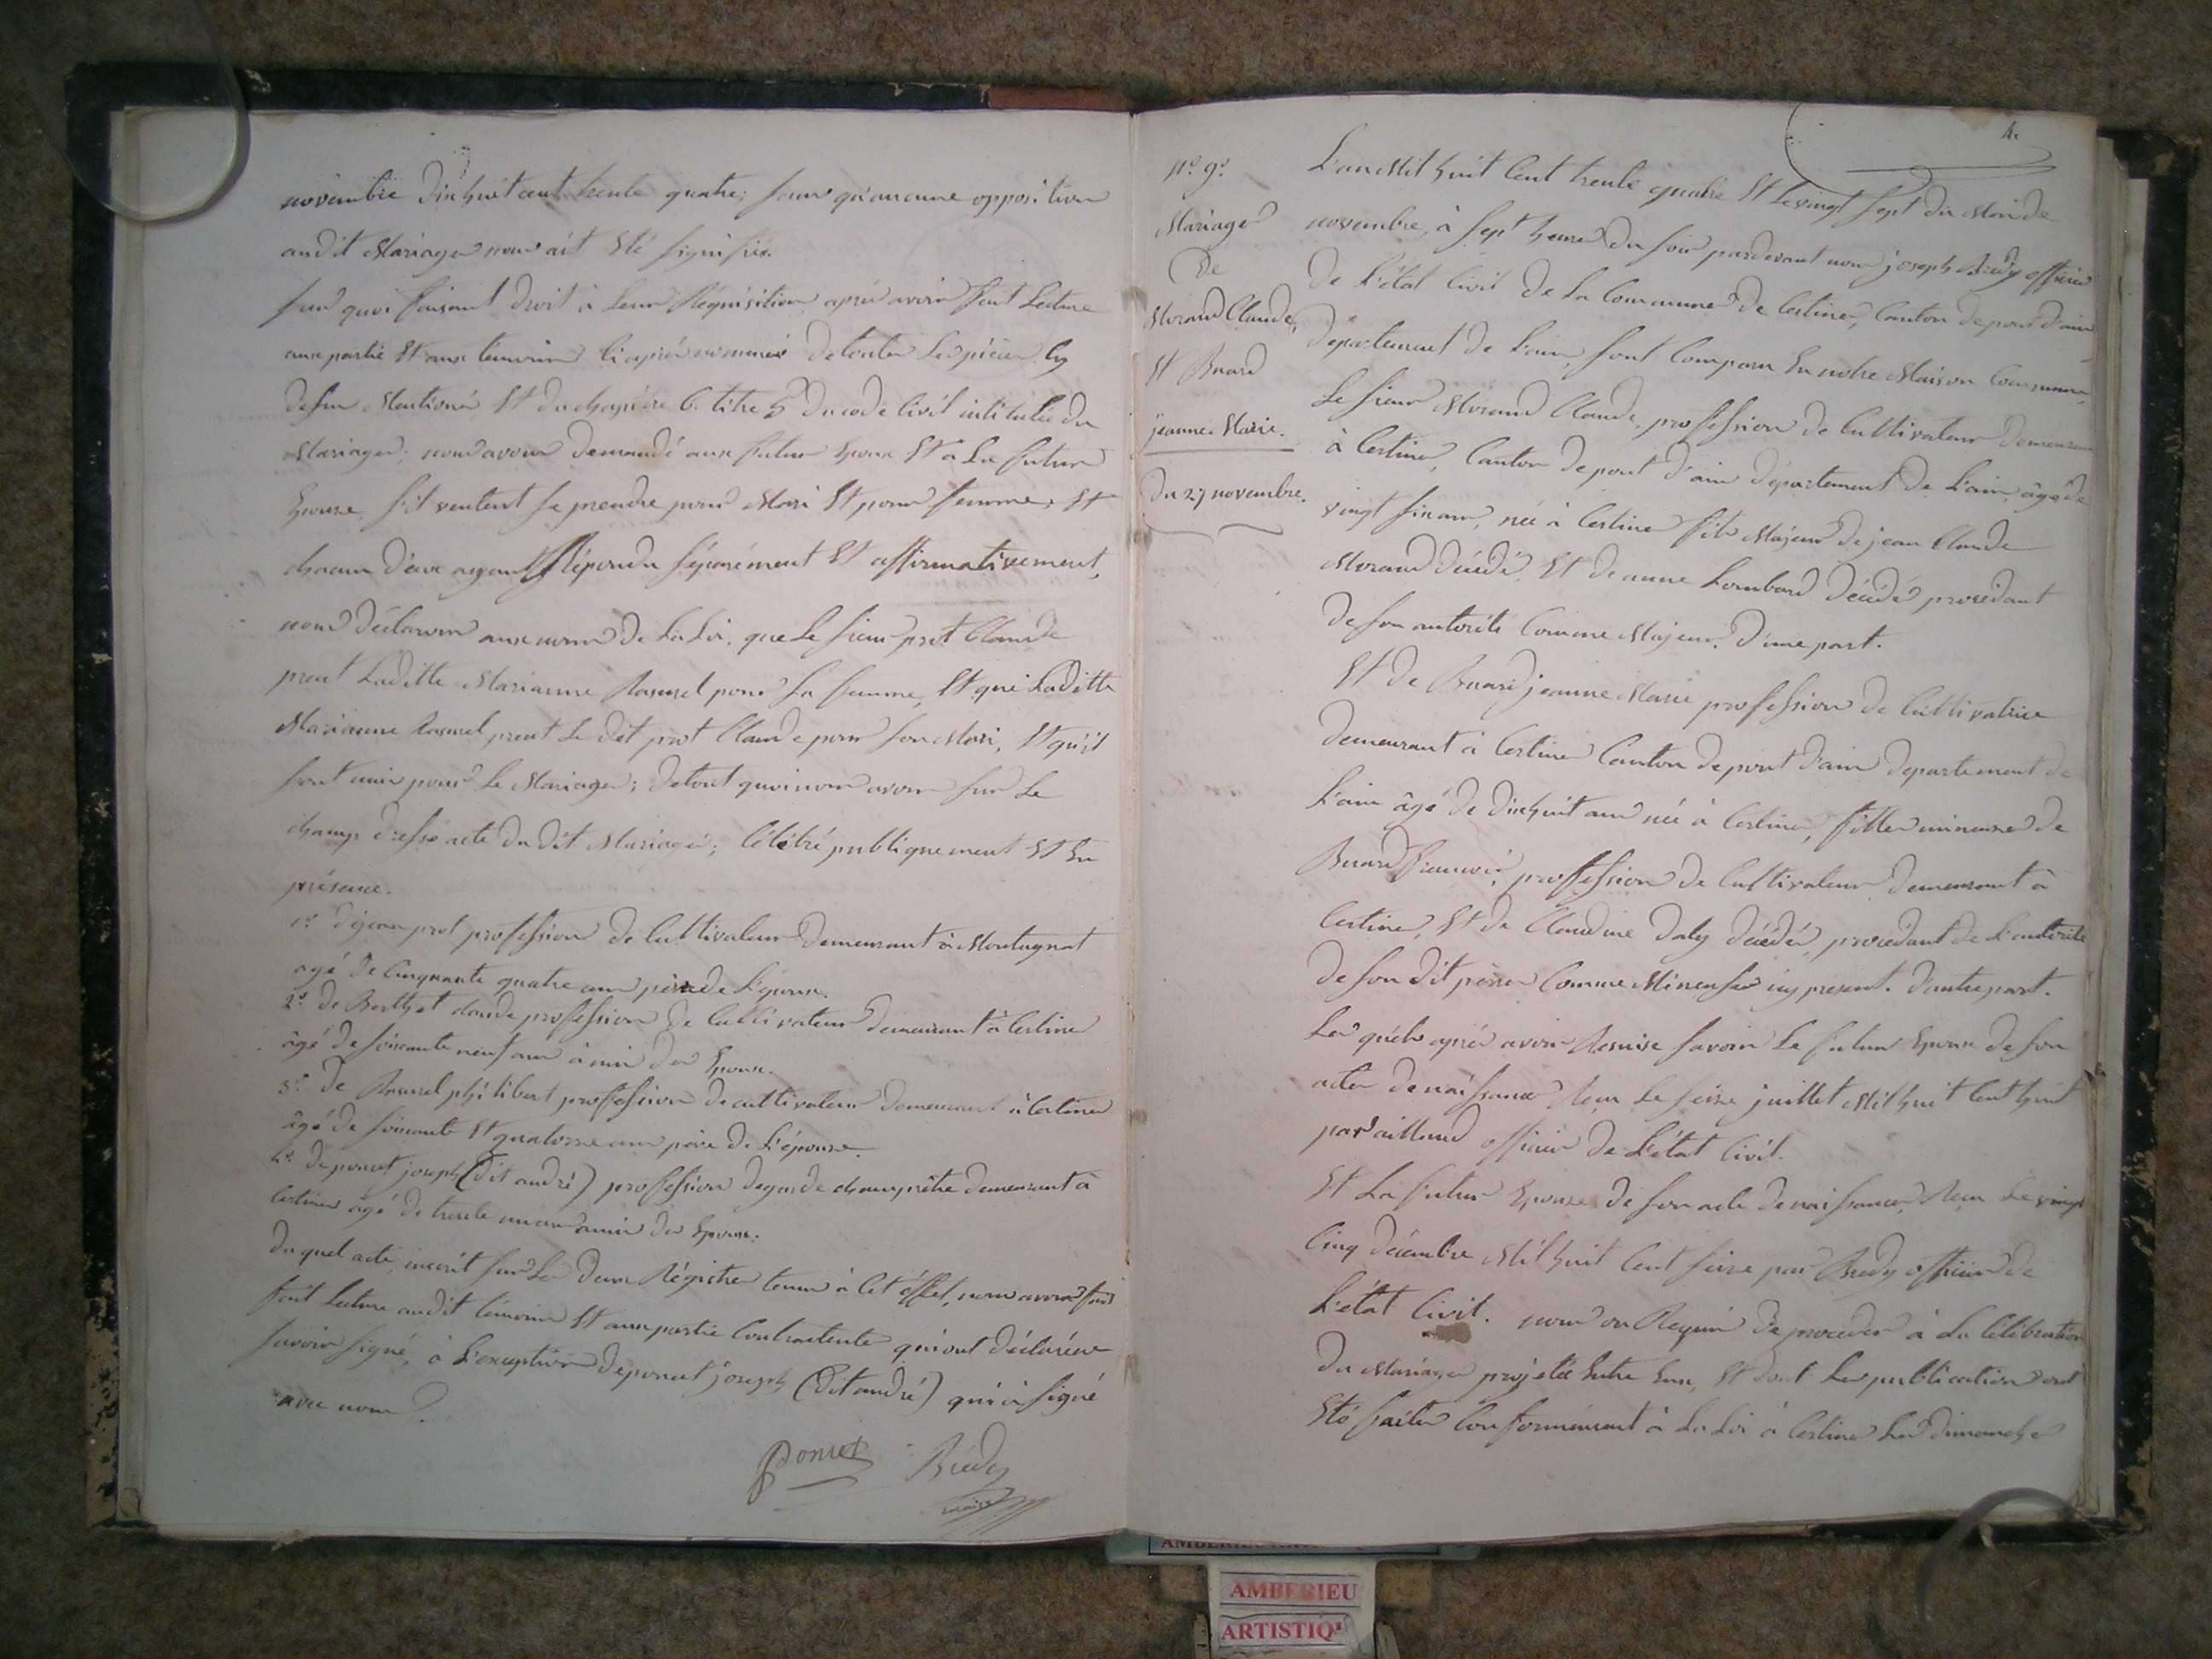 novembre dixhuit cent trente quatre; sans qu'aucune opposition
audit Mariage nous ait été signifié.
sur quoi faisant droit à leur Réquisition, après avoir fait Lecture
aux partie Et aux témoins ci après nommés de toutes les pièces cy
dessus Mentioné Et du chapitre 6. titre 5 du code Civil intitulée du
Mariage; nous avons demandé aux futur Epoux Et à La future
Epouse s'il veulent se prendre pour Mari Et pour femme; Et
chacun d'eux ayant Répondu séparément Et affirmativement,
nous déclarons aux noms de La Loi, que Le sieur prot Claude
prent Laditte Marianne Ramel pour sa femme, Et que Laditte
Marianne Ramel prent Le dit prot Claude pour son Mari, Et qu'il
sont unis pour Le Mariage; de tout quoi nous avons sur Le
champ dressé acte du dit Mariage; Célébré publiquement Et En
présence.
1o. de jean prot profession de Cultivateur demeurant à Montagnat
agé de Cinquante quatre ans père de L'époux.
2o. de Berthet claude profession de Cultivateur demeurant à Certine
âgé de soixante neuf ans amis des Epoux.
3o. De Ramel philibert profession de cultivateur demeurant à Certine
âgé de soixante Et quatorze ans père de L'épouse.
4o. de poncet joseph (dit andré) profession de garde champêtre demeurant à
Certines âgé de trente un ans amis des Epoux.
duquel acte, inscrit sur Les deux Régistre tenus à Cet éffet, nous avons
fait Lecture audit témoins Et aux partie Contractente qui ont déclaré ne
savoir signé, à L'exeption de poncet joseph (dit andré) qui à signé
avec nous.
Poncet Bredy
maire
4
No. 9o.
Mariage
De
Morand Claude,
Et Buard
jeanne. Marie.
du 27 novembre.
L'an Mil huit Cent trente quatre Et Le vingt sept du Mois de
novembre, à sept heures du soir pardevant nous joseph Bredy officier
de L'état Civil de La Commune de Certines, Canton de pont d'ain
département de L'ain, sont Comparu En notre Maison Commune,
Le sieur Morand Claude, profession de Cultivateur demeurant
à Certines, Canton de pont d'ain département de L'ain, âgé de
vingt six ans, née à Certine fils Majeur de jean Claude
Morand décédé, Et de anne Lombard décédé procédant
de son autorité Comme Majeur. d'une part.
Et de Buard jeanne Marie profession de Cultivatrice
demeurant à Certine Canton de pont d'ain departement de
L'ain âgé de dixhuit ans née à Certines, fille mineure de
Buard francois, profession de Cultivateur demeurant à
Certines, Et de Claudine Daly décédée, procédant de L'autorité
de son dit père Comme Mineur icy present. d'autre part.
Les quels après avoir Remise savoir Le futur Epoux de son
acte de naissance Reçu Le seize juillet Mil huit Cent huit
par officier de L'état Civil.
Et La futur Epouse de son acte de naissance, Reçu Le vingt
Cinq décembre Mil huit Cent seize par Bredy officier de
L'état Civil. nous on Requis de procéder à La Célébration
du Mariage projeté Entre Eux, Et dont Les publications ont
Eté faites Conformément à La Loi à Certine Les dimanche
AMBERIEU
ARTISTIQ